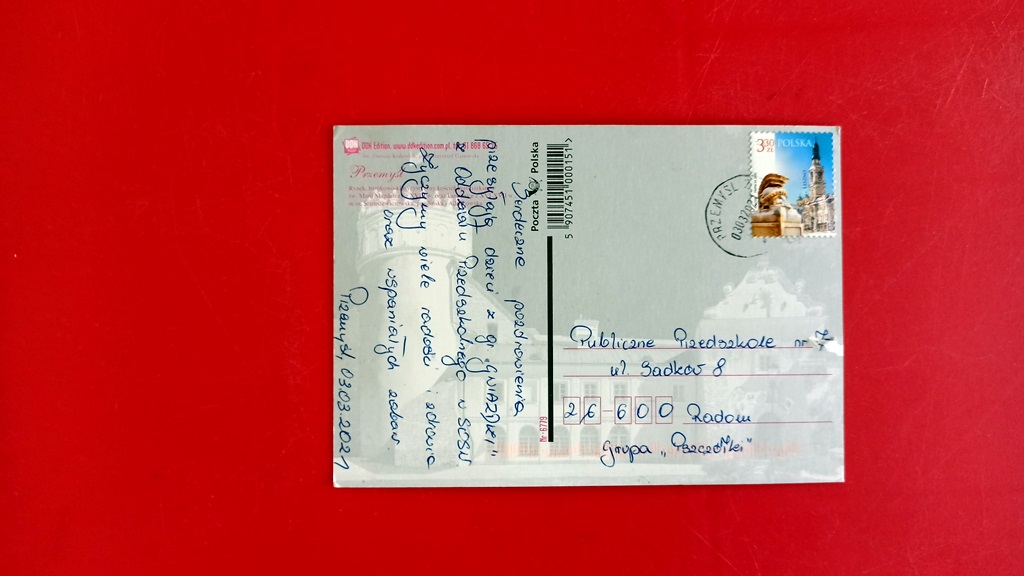 DDK Edition, www.ddkedition.com.pl
Przemyśl
Serdeczne pozdrowienia
przesyłają dzieci z gr. „GWIAZDKI"
z Oddziału Przedszkolnego w SOSW
Życzymy wiele radości i zdrowia
oraz wspaniałych zabaw
Przemyśl, 03.03.2021
Poczta Polska
5 907451 000151
Nr-6779
3,30 ZŁ
POLSKA
PRZEMYŚL
Publiczne Przedszkole nr
ul. Sadkow 8
26-600 Radom
Grupa „Pszczółki"